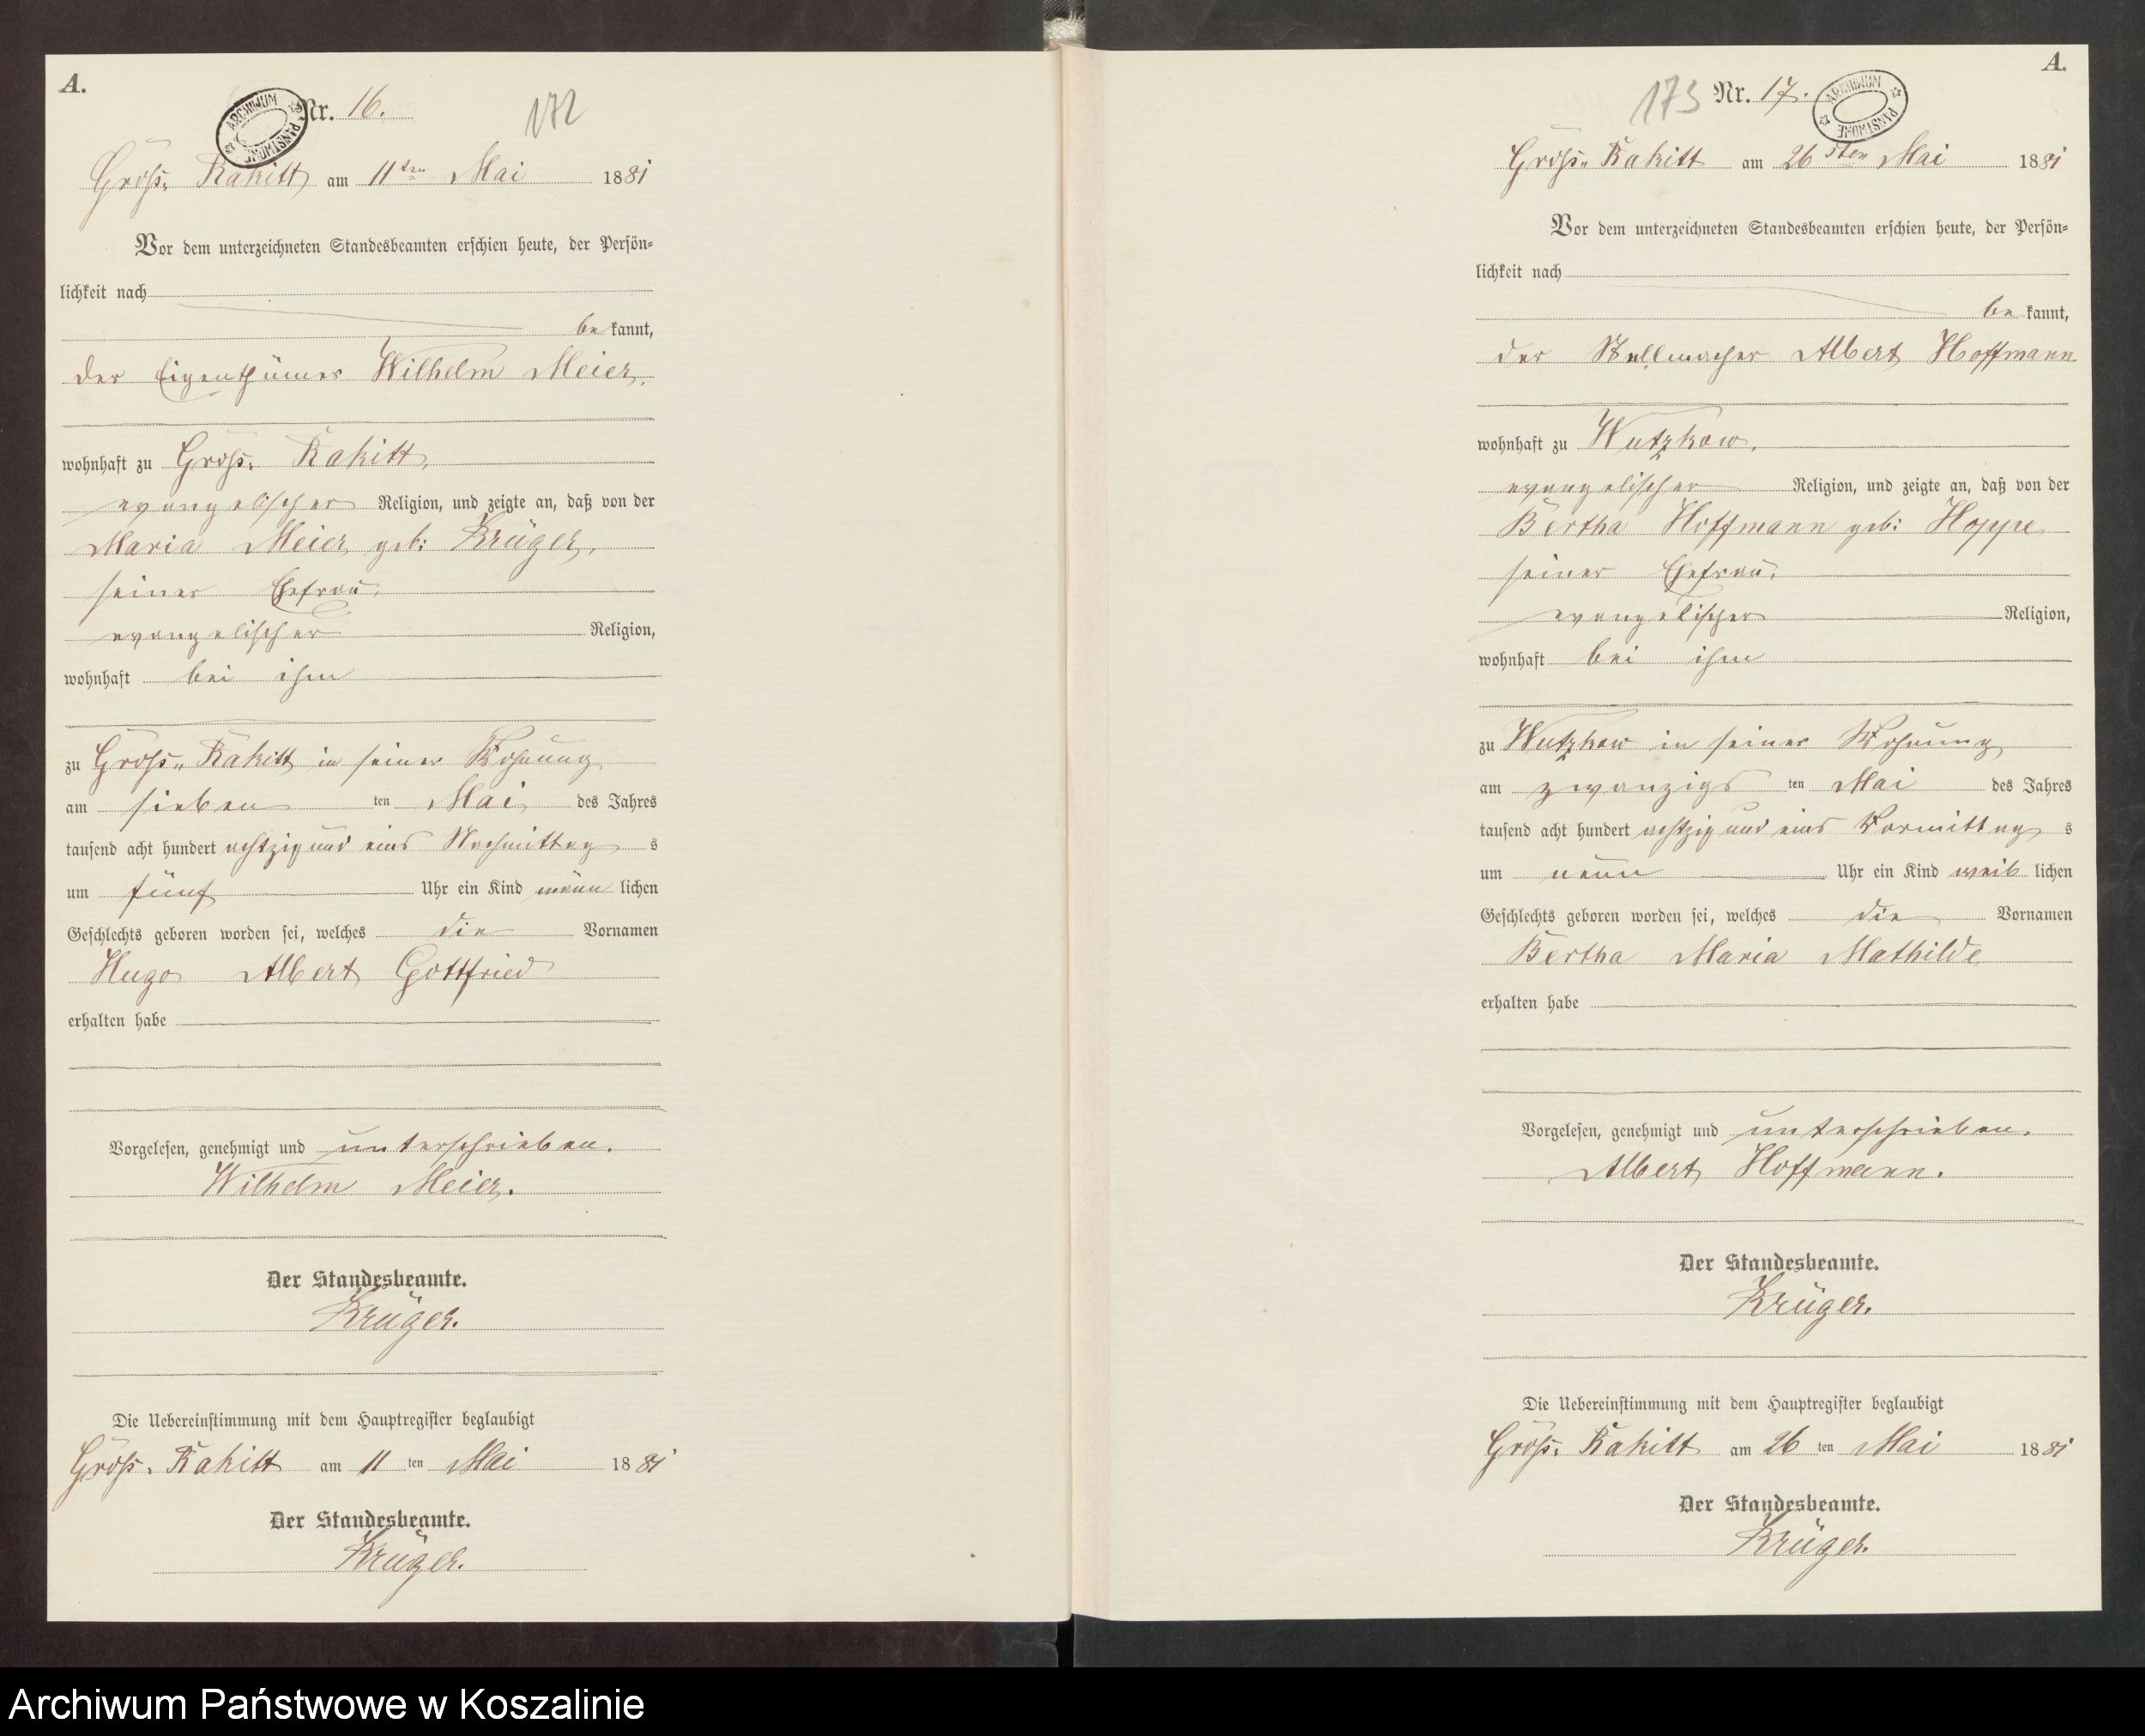 A.
Nr. 16.
172
ARCHIWUM PAŃSTWOWE
Groß- Rakitt am 11ten Mai 1881
Vor dem unterzeichneten Standesbeamten erschien heute, der Persön=
lichkeit nach
bekannt,
der Eigenthümer Wilhelm Meier,
wohnhaft zu Groß- Rakitt,
evangelischer Religion, und zeigte an, daß von der
Maria Meier geb: Krüger,
seiner Ehefrau,
evangelischer Religion,
wohnhaft bei ihm
zu Groß- Rakitt in seiner Wohnung
am sieben ten Mai des Jahres
tausend acht hundert achtzig und eins Nachmittag s
um fünf Uhr ein Kind männ lichen
Geschlechts geboren worden sei, welches die Vornamen
Hugo Albert Gottfried
erhalten habe
Vorgelesen, genehmigt und unterschrieben.
Wilhelm Meier.
Der Standesbeamte.
Krüger.
Die Uebereinstimmung mit dem Hauptregister beglaubigt
Groß- Rakitt am 11 ten Mai 1881
Der Standesbeamte.
Krüger.
A.
173 Nr. 17.
ARCHIWUM PAŃSTWOWE
Groß- Rakitt am 26sten Mai 1881
Vor dem unterzeichneten Standesbeamten erschien heute, der Persön=
lichkeit nach
bekannt,
der Stellmacher Albert Hoffmann
wohnhaft zu Wutzkow,
evangelischer Religion, und zeigte an, daß von der
Bertha Hoffmann geb: Hoppe
seiner Ehefrau,
evangelischer Religion,
wohnhaft bei ihm
zu Wutzkow in seiner Wohnung
am zwanzigs ten Mai des Jahres
tausend acht hundert achtzig und eins Vormittag s
um neun Uhr ein Kind weib lichen
Geschlechts geboren worden sei, welches die Vornamen
Bertha Maria Mathilde
erhalten habe
Vorgelesen, genehmigt und unterschrieben.
Albert Hoffmann.
Der Standesbeamte.
Krüger.
Die Uebereinstimmung mit dem Hauptregister beglaubigt
Groß- Rakitt am 26 ten Mai 1881
Der Standesbeamte.
Krüger.
Archiwum Państwowe w Koszalinie